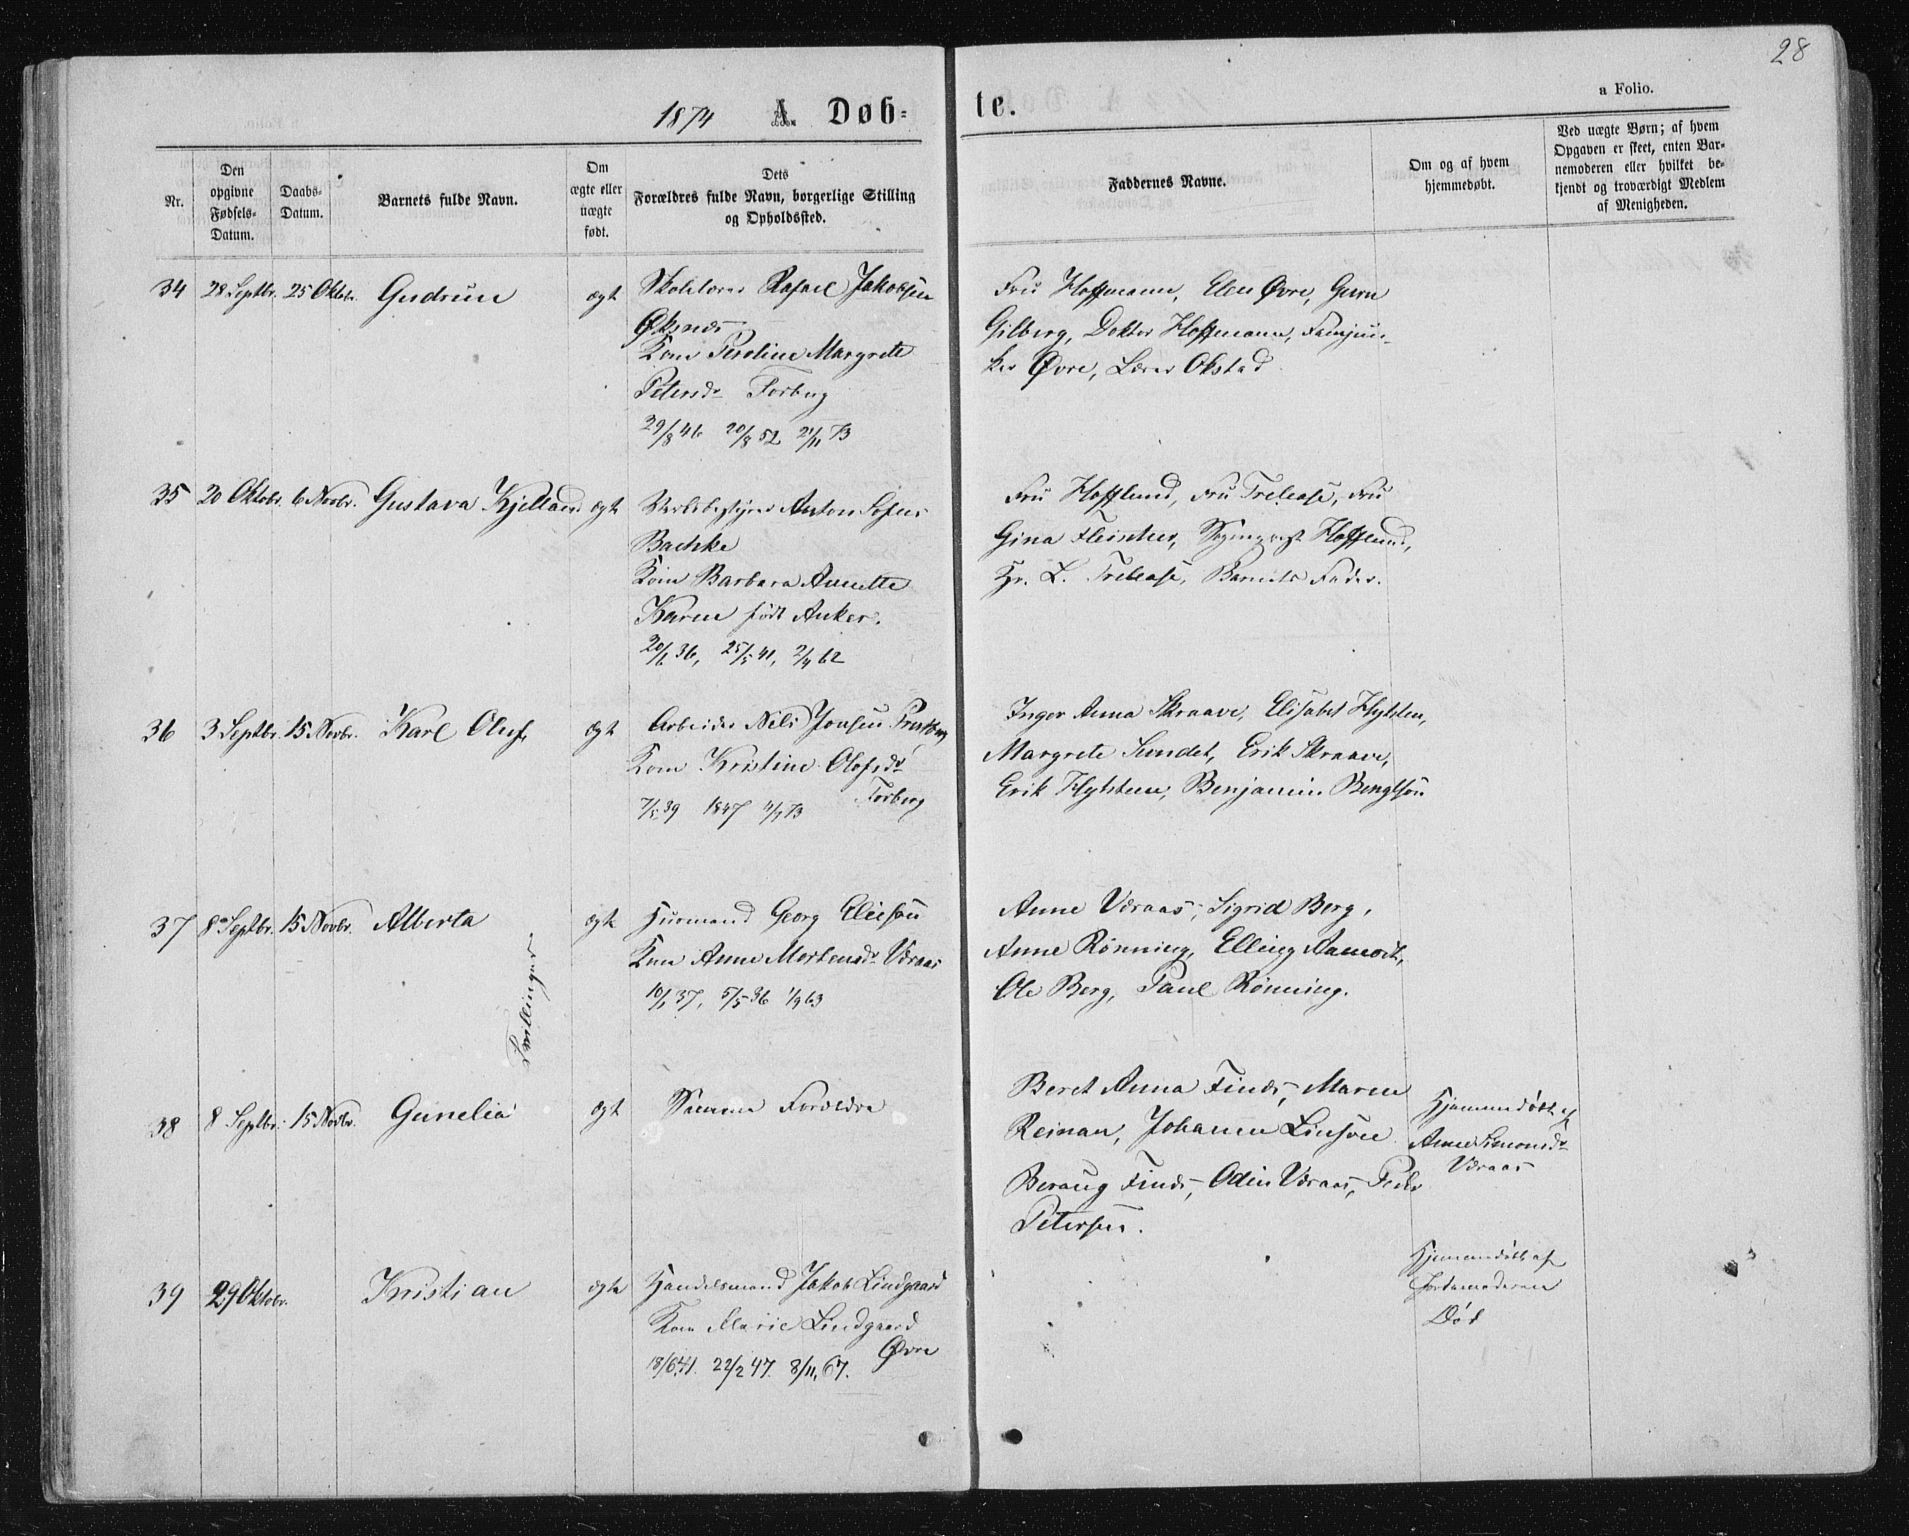 28
a Folio.
1874 A Døb=
te.
Nr.
Den opgivne Fødsels-Datum.
Daabs-Datum.
Barnets fulde Navn.
Om ægte eller uægte født.
Dets Forældres fulde Navn, borgerlige Stilling og Opholdssted.
Faddernes Navne.
Om og af hvem hjemmedøbt.
Ved uægte Børn; af hvem Opgaven er skeet, enten Barnemoderen eller hvilket bekjendt og troværdigt Medlem af Menigheden.
34 28 Septbr. 25 Oktobr. Gudrun ægt Skolelærer Rafael Jakobsen
Øksnes
Kone Peroline Margrete
Petersdr Forberg
29/8 46 20/8 52 21/11 73
Fru Hoffmann, Elen Øvre, Guru
Gilberg, Doktor Hoffmann, Fanejun-
ker Øvre, Lærer Okstad
35 20 Oktobr. 6 Novbr. Gustava Kjelland ægt Værksbestyrer Anton Sofus
Bachke
Kone Barbara Annette
Karen født Anker.
20/6 36, 25/5 41, 2/4 62
Fru Hofflund, Fru Trelease, Fru
Gina Fleischer, Hofflund,
Hr. L. Trelease, Barnets Fader.
36 3 Septbr. 15 Novbr. Karl Oluf ægt Arbeider Nils Jonsen
Kone Kristine Olofsdr
Forberg
7/5 39 1847 4/7 73
Inger Anna Skraave, Elisabet Flytsten,
Margrete Sundet, Erik Skraave,
Erik Flytsten, Benjamin Bengtson
37 8 Septbr. 15 Novbr. Alberta ægt Husmand Georg Eliesen
Kone Anne Mortensdr Væraas
10/1 37, 5/5 36 1/9 63
Anne Væraas, Sigrid Berg,
Anne Rønning, Elling Aamodt,
Ole Berg, Paul Rønning.
Tvillinger
38 8 Septbr. 15 Novbr. Gunelia ægt Samme Forældre
Beret Anna Finds, Maren
Reinan, Johannes
Beraug Finds, Odin Væraas, Peder
Petersen.
Hjemmedøbt af
Anne Simonsdr
Væraas
39 29 Oktobr. Kristian ægte Handelsmand Jakob Lindgaard
Kone Marie Lindgaard
Øvre
18/6 41. 22/2 47. 8/11 67.
Hjemmedøbt af
Jordemoderen
Død